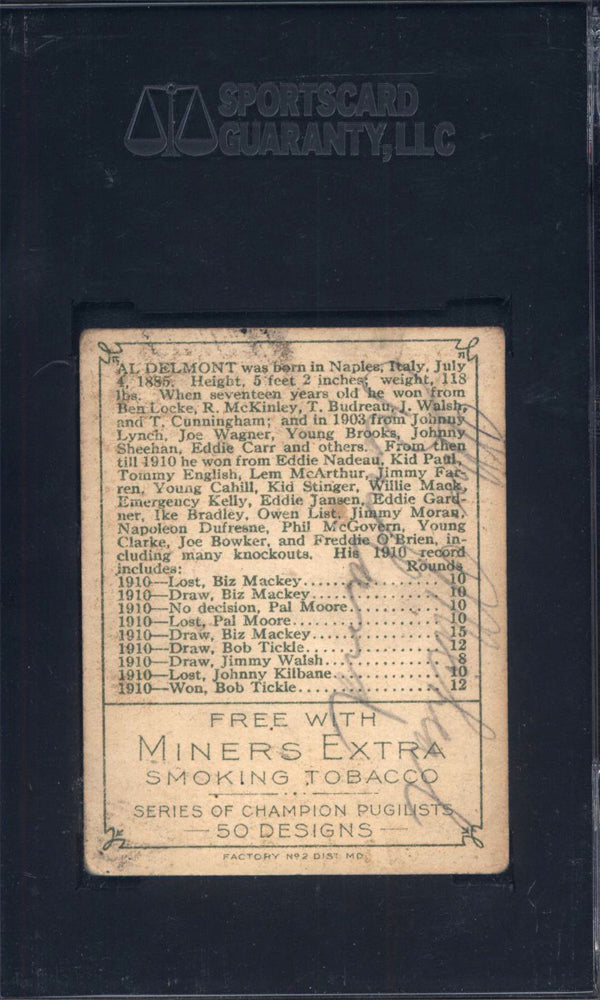 SPORTSCARD
GUARANTY, LLC
AL DELMONT was born in Naples, Italy, July
4, 1885. Height, 5 feet 2 inches; weight, 118
lbs. When seventeen years old he won from
Ben Locke, R. McKinley, T. Budreau, J. Walsh,
and T. Cunningham; and in 1903 from Johnny
Lynch, Joe Wagner, Young Brooks, Johnny
Sheehan, Eddie Carr and others. From then
till 1910 he won from Eddie Nadeau, Kid Paul,
Tommy English, Lem McArthur, Jimmy Far-
ren, Young Cahill, Kid Stinger, Willie Mack,
Emergency Kelly, Eddie Jansen, Eddie Gard-
ner, Ike Bradley, Owen List, Jimmy Moran,
Napoleon Dufresne, Phil McGovern, Young
Clarke, Joe Bowker, and Freddie O'Brien, in-
cluding many knockouts. His 1910 record
includes: Rounds
1910—Lost, Biz Mackey.................... 10
1910—Draw, Biz Mackey.................... 10
1910—No decision, Pal Moore.............. 10
1910—Lost, Pal Moore..................... 10
1910—Draw, Biz Mackey.................... 15
1910—Draw, Bob Tickle.................... 12
1910—Draw, Jimmy Walsh................... 8
1910—Lost, Johnny Kilbane................ 10
1910—Won, Bob Tickle..................... 12
FREE WITH
MINERS EXTRA
SMOKING TOBACCO
SERIES OF CHAMPION PUGILISTS
— 50 DESIGNS —
FACTORY Nº 2 DIST. MD.